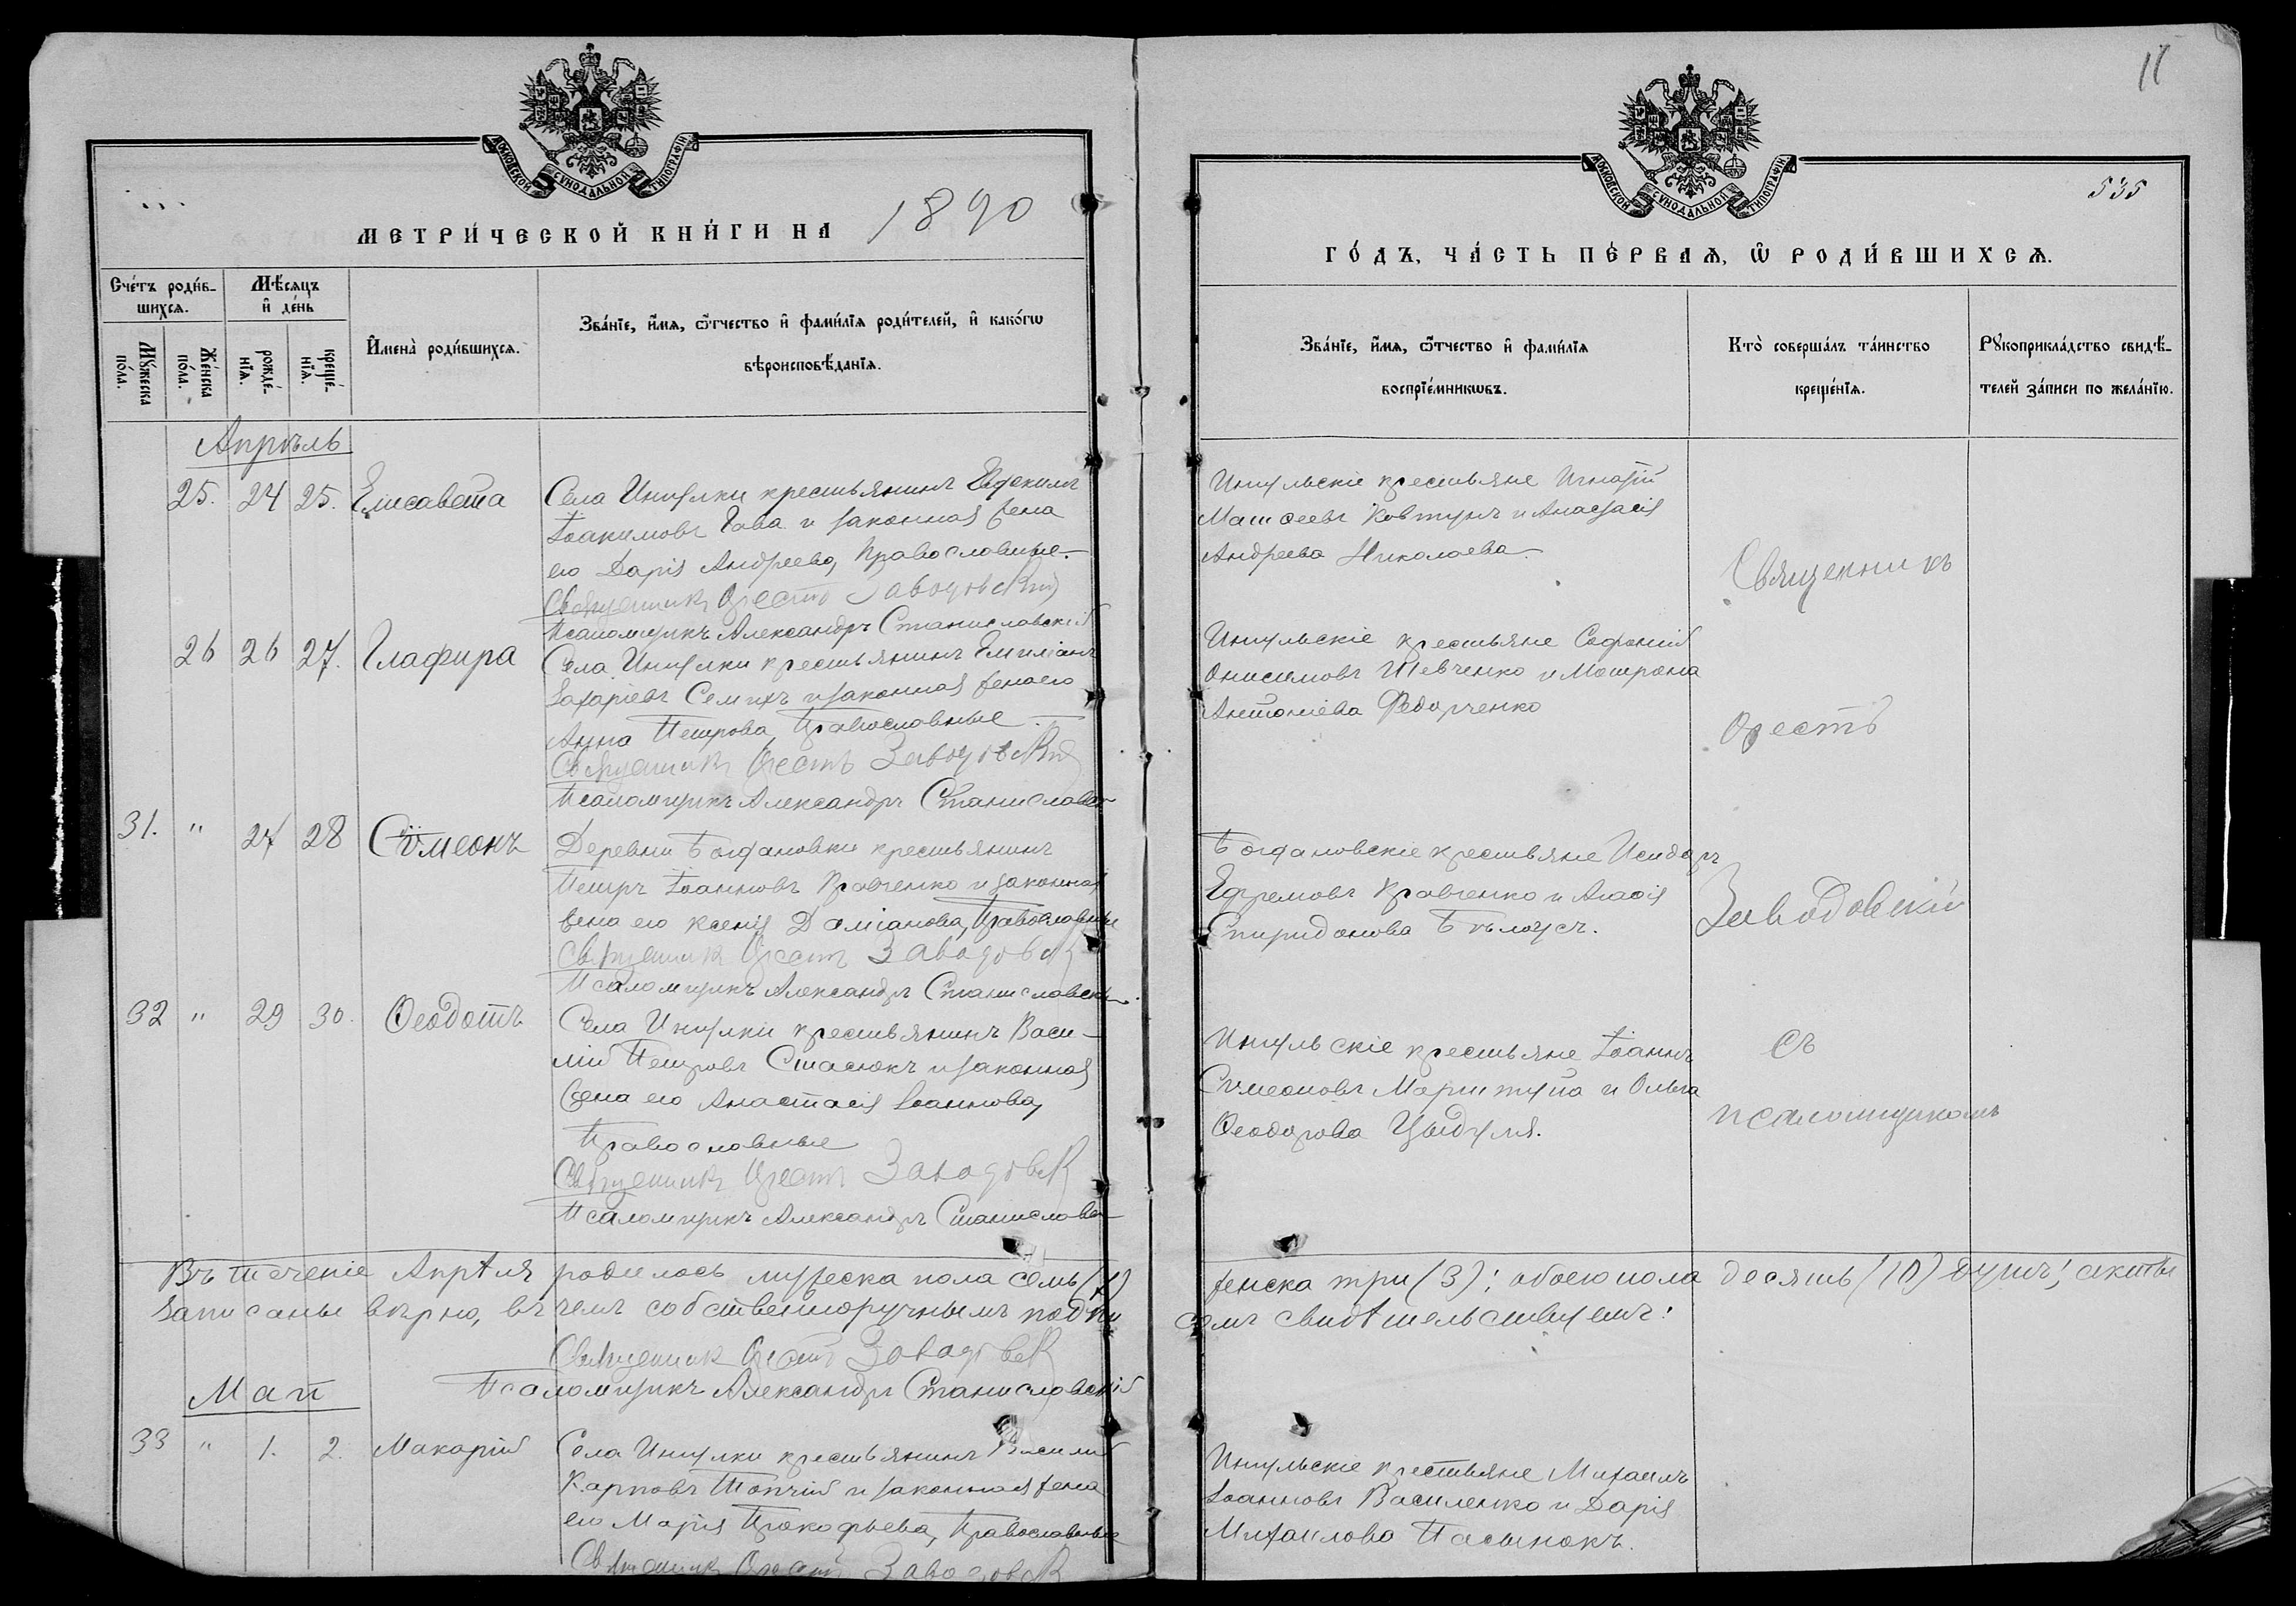 11
535
МОСКОВСКОЙ СУНОДАЛЬНОЙ ТИПОГРАФІИ
МОСКОВСКОЙ СУНОДАЛЬНОЙ ТИПОГРАФІИ
МЕТРИ́ЧЕСКОЙ КНИ́ГИ НА 1890
ГО́ДЪ, ЧА́СТЬ ПЕ́РВАѦ, Ѡ҆ РОДИ́ВШИХСѦ.
Сче́тъ роди́в-
шихсѧ.
Мѣ́сѧцъ
и҆ де́нь
Мꙋ́жеска
по́ла.
Же́нска
по́ла.
рожде́-
нїѧ.
креще́-
нїѧ.
И҆мена̀ роди́вшихсѧ.
Зва́нїе, и҆́мѧ, ѻ҆́тчество и҆ фами́лїѧ роди́телей, и҆ како́гѡ
вѣроисповѣ́данїѧ.
Зва́нїе, и҆́мѧ, ѻ҆́тчество и҆ фами́лїѧ
воспрїе́мникѡвъ.
Кто̀ соверша́лъ та́инство
креще́нїѧ.
Рꙋкоприкла́дство свидѣ́-
телей за́писи по жела́нїю.
Апрѣль
25. 24 25. Елисавета
Села Ингулки крестьянинъ Евдокимъ
Іоакимовъ Гава и законная жена
его Дарія Андреева, Православные.
Священникъ Орестъ Заводовскій
Псаломщикъ Александръ Станиславскій
Ингульскіе крестьяне Игнатій
Матѳеевъ Ковтунъ и Анастасія
Андреева Николаева
26 26 27. Глафира
Села Ингулки крестьянинъ Емиліанъ
Захаріевъ Семихъ и законная жена его
Анна Петрова, Православные.
Священникъ Орестъ Заводовскій
Псаломщикъ Александръ Станиславск
Ингульскіе крестьяне Софоній
Онисимовъ Шевченко и Матрона
Антоніева Федорченко
31. " 27 28 Сѵмеонъ
Деревни Богдановки крестьянинъ
Петръ Іоанновъ Кравченко и законная
жена его Ксенія Даміанова, Православные
Священникъ Орестъ Заводовск
Псаломщикъ Александръ Станиславск
Богдановскіе крестьяне Исидоръ
Ефремовъ Кравченко и Агафія
Спиридонова Бѣлоусъ.
32 " 29 30. Ѳеодотъ
Села Ингулки крестьянинъ Васи-
лій Петровъ Стасюкъ и законная
жена его Анастасія Іоаннова,
Православные
Священникъ Орестъ Заводовск
Псаломщикъ Александръ Станиславск
Ингульскіе крестьяне Іоаннъ
Сѵмеоновъ Мариптупа и Ольга
Ѳеодорова Цыдуля.
Священникъ
Орестъ
Заводовскій
съ
псаломщикомъ
Въ теченіе Апрѣля родилось мужеска пола семь (7) женска три (3); обоего пола десять (10) душъ; акты
записаны вѣрно, въ чемъ собственноручнымъ подпи сомъ свидѣтельствуемъ:
Священникъ Орестъ Заводовск
Псаломщикъ Александръ Станиславскій
Май
33 " 1. 2. Макарій
Села Ингулки крестьянинъ Василій
Карповъ Топчій и законная жена
его Марія Прокофьева, Православные
Священникъ Орестъ Заводовск
Ингульскіе крестьяне Михаилъ
Іоанновъ Василенко и Дарія
Михаилова Пасынокъ.